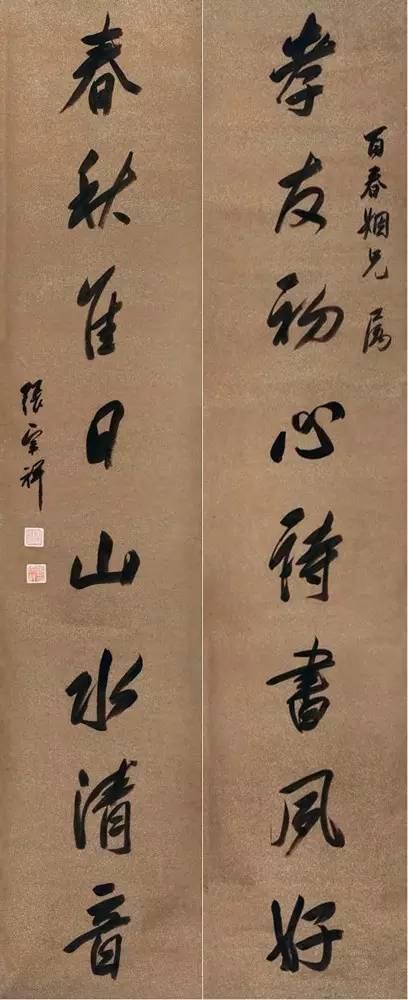 百春姻兄 属
孝友初心詩書夙好
春秋佳日山水清音
張宗祥